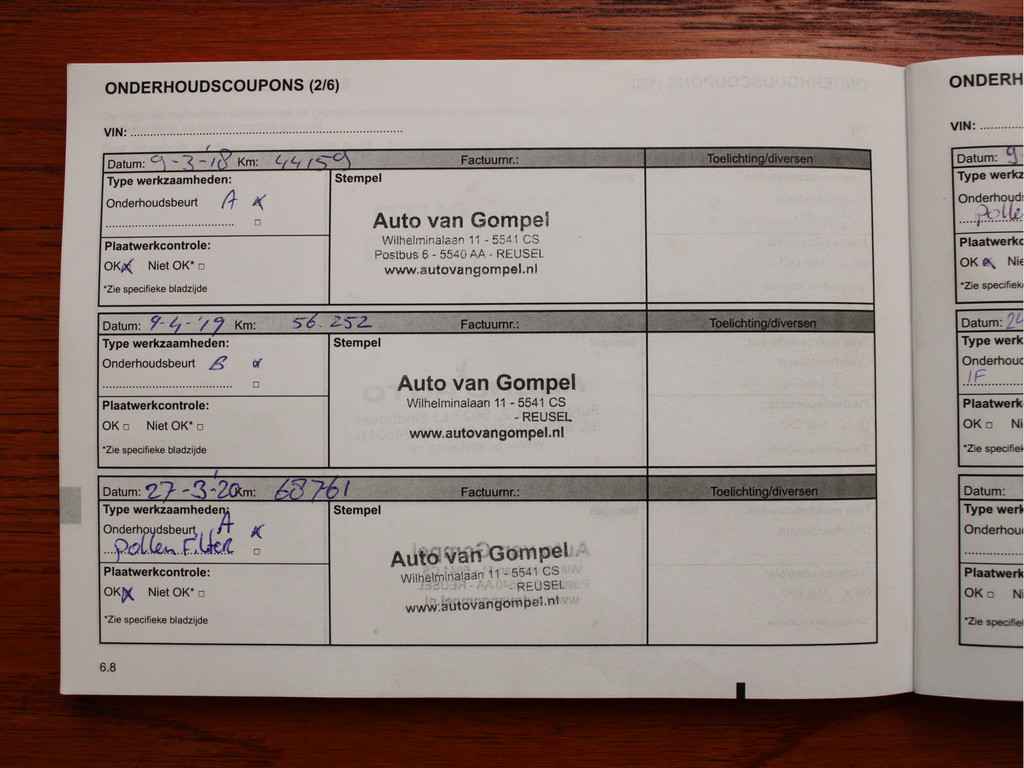 ONDERHOUDSCOUPONS (2/6)
VIN: ....................
Datum: 9-3-'18 Km: 44159 Factuurnr.: Toelichting/diversen
Type werkzaamheden:
Onderhoudsbeurt A
Stempel
Auto van Gompel
Wilhelminalaan 11 - 5541 CS
Postbus 6 - 5540 AA - REUSEL
www.autovangompel.nl
Plaatwerkcontrole:
OK Niet OK*
*Zie specifieke bladzijde
Datum: 9-4-'19 Km: 56.252 Factuurnr.: Toelichting/diversen
Type werkzaamheden:
Onderhoudsbeurt B
Stempel
Auto van Gompel
Wilhelminalaan 11 - 5541 CS
- REUSEL
www.autovangompel.nl
Plaatwerkcontrole:
OK Niet OK*
*Zie specifieke bladzijde
Datum: 27-3-'20 Km: 68761 Factuurnr.: Toelichting/diversen
Type werkzaamheden:
Onderhoudsbeurt A
pollen Filter
Stempel
Auto van Gompel
Wilhelminalaan 11 - 5541 CS
- REUSEL
www.autovangompel.nl
Plaatwerkcontrole:
OK Niet OK*
*Zie specifieke bladzijde
6.8
ONDERH
VIN: ..........
Datum: 9
Type werkz
Onderhouds
polle
Plaatwerkc
OK Nie
*Zie specifiek
Datum: 24
Type werk
Onderhoud
IF
Plaatwerk
OK Ni
*Zie specifiek
Datum:
Type werk
Onderhou
Plaatwerk
OK N
*Zie specifie